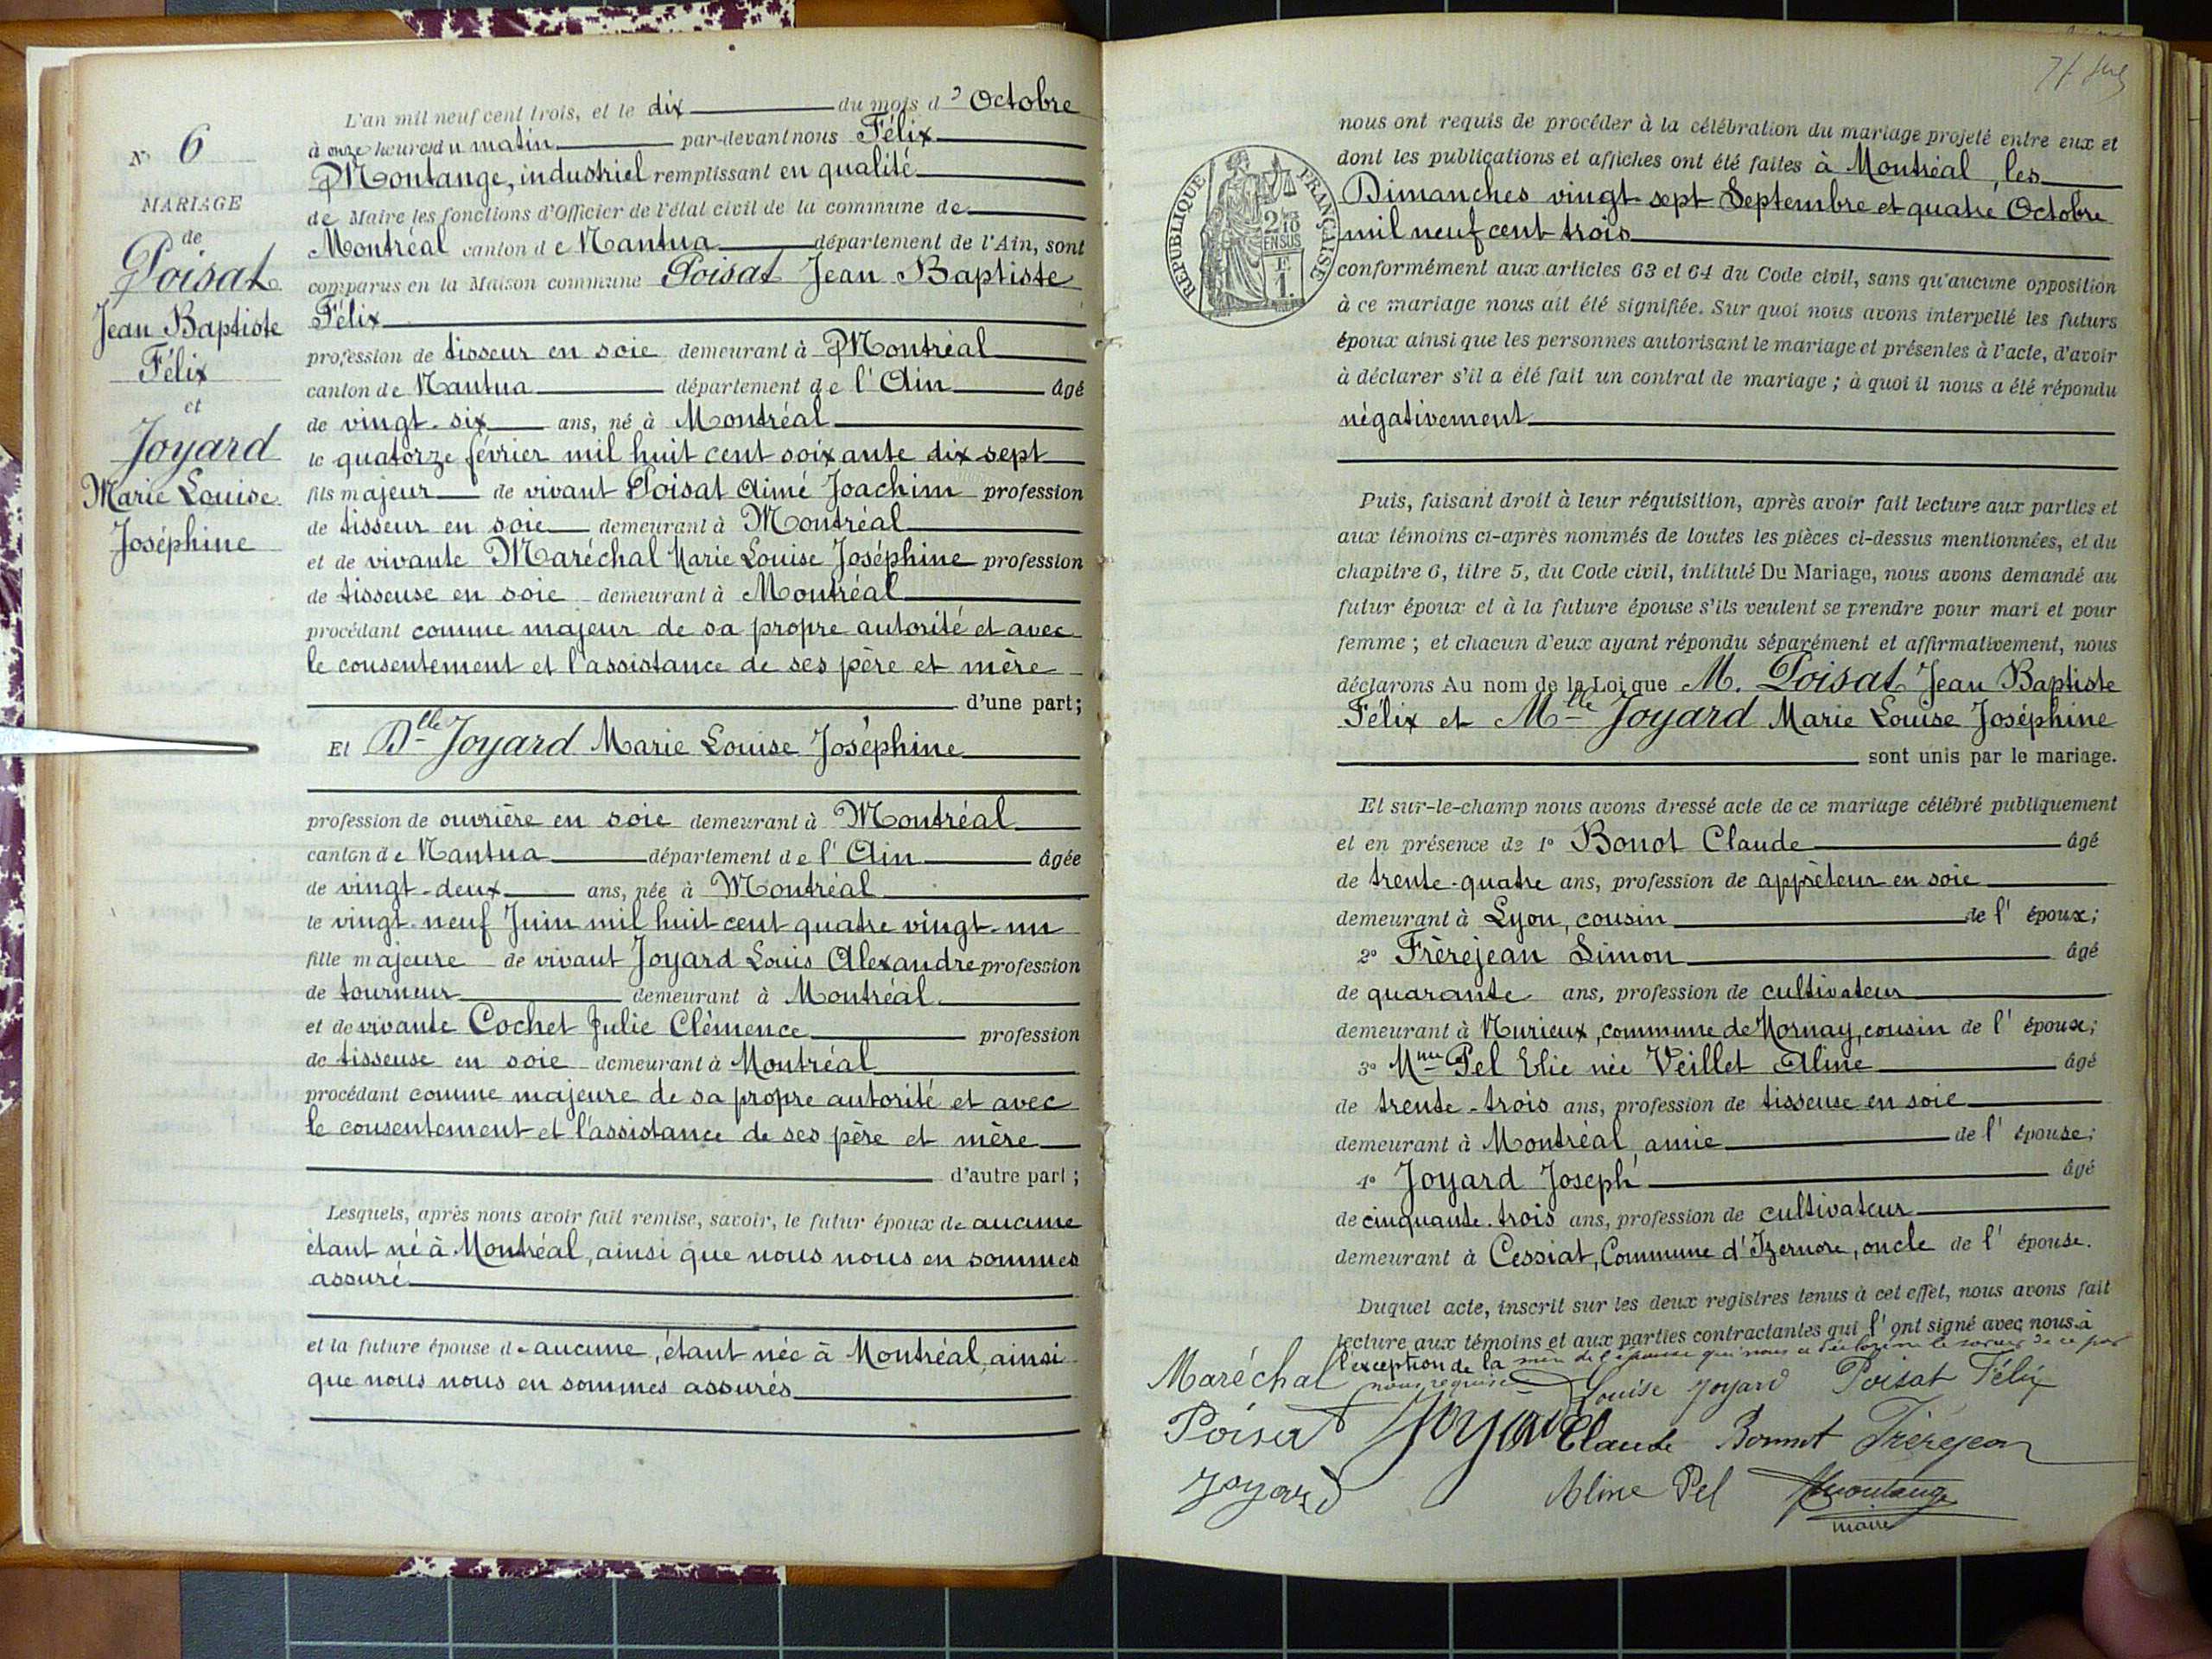 N° 6
MARIAGE
de
Poisat
Jean Baptiste
Félix
et
Joyard
Marie Louise
Joséphine
L'an mil neuf cent trois, et le dix du mois d'Octobre
à onze heures du matin par-devant nous Félix
Montange, industriel remplissant en qualité
de Maire les fonctions d'Officier de l'état civil de la commune de
Montréal canton de Nantua département de l'Ain, sont
comparus en la Maison commune Poisat Jean Baptiste
Félix
profession de tisseur en soie demeurant à Montréal
canton de Nantua département de l'Ain âgé
de vingt-six ans, né à Montréal
le quatorze février mil huit cent soixante dix sept
fils majeur de vivant Poisat Aimé Joachim profession
de tisseur en soie demeurant à Montréal
et de vivante Maréchal Marie Louise Joséphine profession
de tisseuse en soie demeurant à Montréal
procédant comme majeur de sa propre autorité et avec
le consentement et l'assistance de ses père et mère
d'une part;
Et Dlle Joyard Marie Louise Joséphine
profession de ouvrière en soie demeurant à Montréal
canton de Nantua département de l'Ain âgée
de vingt-deux ans, née à Montréal
le vingt-neuf Juin mil huit cent quatre vingt-un
fille majeure de vivant Joyard Louis Alexandre profession
de tourneur demeurant à Montréal
et de vivante Cochet Julie Clémence profession
de tisseuse en soie demeurant à Montréal
procédant comme majeure de sa propre autorité et avec
le consentement et l'assistance de ses père et mère
d'autre part;
Lesquels, après nous avoir fait remise, savoir, le futur époux de aucune
étant né à Montréal, ainsi que nous nous en sommes
assuré
et la future épouse de aucune, étant née à Montréal, ainsi
que nous nous en sommes assurés
RÉPUBLIQUE FRANÇAISE
2/10
EN SUS
F.
1.
nous ont requis de procéder à la célébration du mariage projeté entre eux et
dont les publications et affiches ont été faites à Montréal, les
Dimanches vingt-sept Septembre et quatre Octobre
mil neuf cent trois
conformément aux articles 63 et 64 du Code civil, sans qu'aucune opposition
à ce mariage nous ait été signifiée. Sur quoi nous avons interpellé les futurs
époux ainsi que les personnes autorisant le mariage et présentes à l'acte, d'avoir
à déclarer s'il a été fait un contrat de mariage; à quoi il nous a été répondu
négativement
Puis, faisant droit à leur réquisition, après avoir fait lecture aux parties et
aux témoins ci-après nommés de toutes les pièces ci-dessus mentionnées, et du
chapitre 6, titre 5, du Code civil, intitulé Du Mariage, nous avons demandé au
futur époux et à la future épouse s'ils veulent se prendre pour mari et pour
femme; et chacun d'eux ayant répondu séparément et affirmativement, nous
déclarons Au nom de la Loi que M. Poisat Jean Baptiste
Félix et Mlle Joyard Marie Louise Joséphine
sont unis par le mariage.
Et sur-le-champ nous avons dressé acte de ce mariage célébré publiquement
et en présence de 1° Bonot Claude âgé
de trente-quatre ans, profession de apprêteur en soie
demeurant à Lyon, cousin de l'époux;
2° Frèrejean Simon âgé
de quarante ans, profession de cultivateur
demeurant à Nurieux, commune de Mornay, cousin de l'époux;
3° Mme Pel Elie née Veillet Aline âgé
de trente-trois ans, profession de tisseuse en soie
demeurant à Montréal, amie de l'épouse;
4° Joyard Joseph âgé
de cinquante-trois ans, profession de cultivateur
demeurant à Cessiat, Commune d'Izernore, oncle de l'épouse.
Duquel acte, inscrit sur les deux registres tenus à cet effet, nous avons fait
lecture aux témoins et aux parties contractantes qui l'ont signé avec nous à
l'exception de la mère de l'épouse qui nous a déclaré ne le savoir de ce par
nous requise
Maréchal Louise Joyard Poisat Félix
Poisat Joyard Claude Bonnot Frèrejean
Joyard Aline Pel Montange
maire